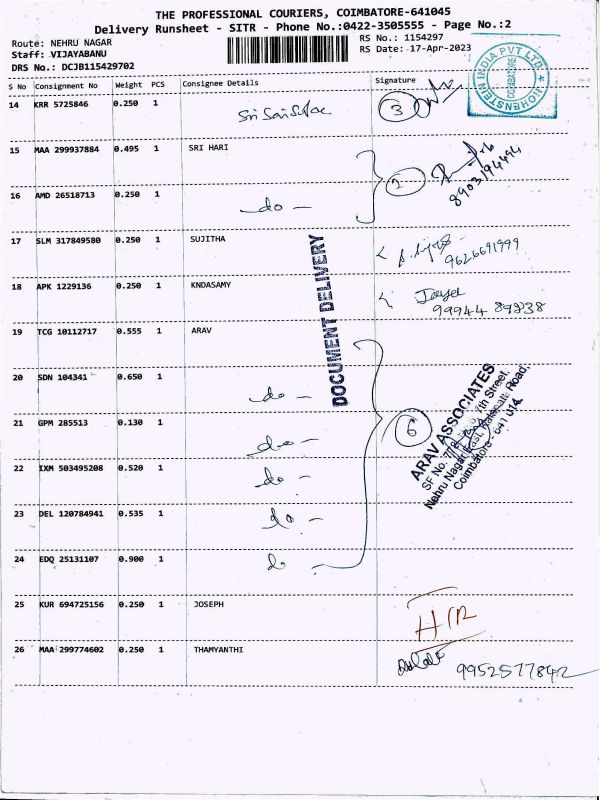 THE PROFESSIONAL COURIERS, COIMBATORE-641045
Delivery Runsheet - SITR - Phone No.:0422-3505555 - Page No.:2
Route: NEHRU NAGAR
RS No.: 1154297
Staff: VIJAYABANU
RS Date: 17-Apr-2023
DRS No.: DCJB115429702
HOHENSTEIN INDIA PVT LTD
COIMBATORE
S No Consignment No Weight PCS Consignee Details Signature
14 KRR 5725846 0.250 1 3
15 MAA 299937884 0.495 1 SRI HARI
2 8903194494
16 AMD 26518713 0.250 1 do -
17 SLM 317849580 0.250 1 SUJITHA 9626691999
18 APK 1229136 0.250 1 KNDASAMY
99944 89838
DOCUMENT DELIVERY
19 TCG 10112717 0.555 1 ARAV
20 SDN 104341 0.650 1 do -
21 GPM 285513 0.130 1 do -
6
ARAV ASSOCIATES
7th Street,
Nehru Nagar East, Kalapatti Road,
Coimbatore - 641 014.
22 IXM 503495208 0.520 1 do -
23 DEL 120784941 0.535 1 do -
24 EDQ 25131107 0.900 1 do -
25 KUR 694725156 0.250 1 JOSEPH
26 MAA 299774602 0.250 1 THAMYANTHI
9952577842